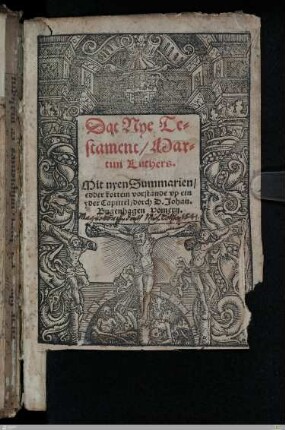 Dat Nye Te-
stament/ Mar-
tin Luthers.
Mit nyen Summarien/
edder korten vorstande vp ein
yder Capittel/ dorch D. Johan.
Bugenhagen Pomern.